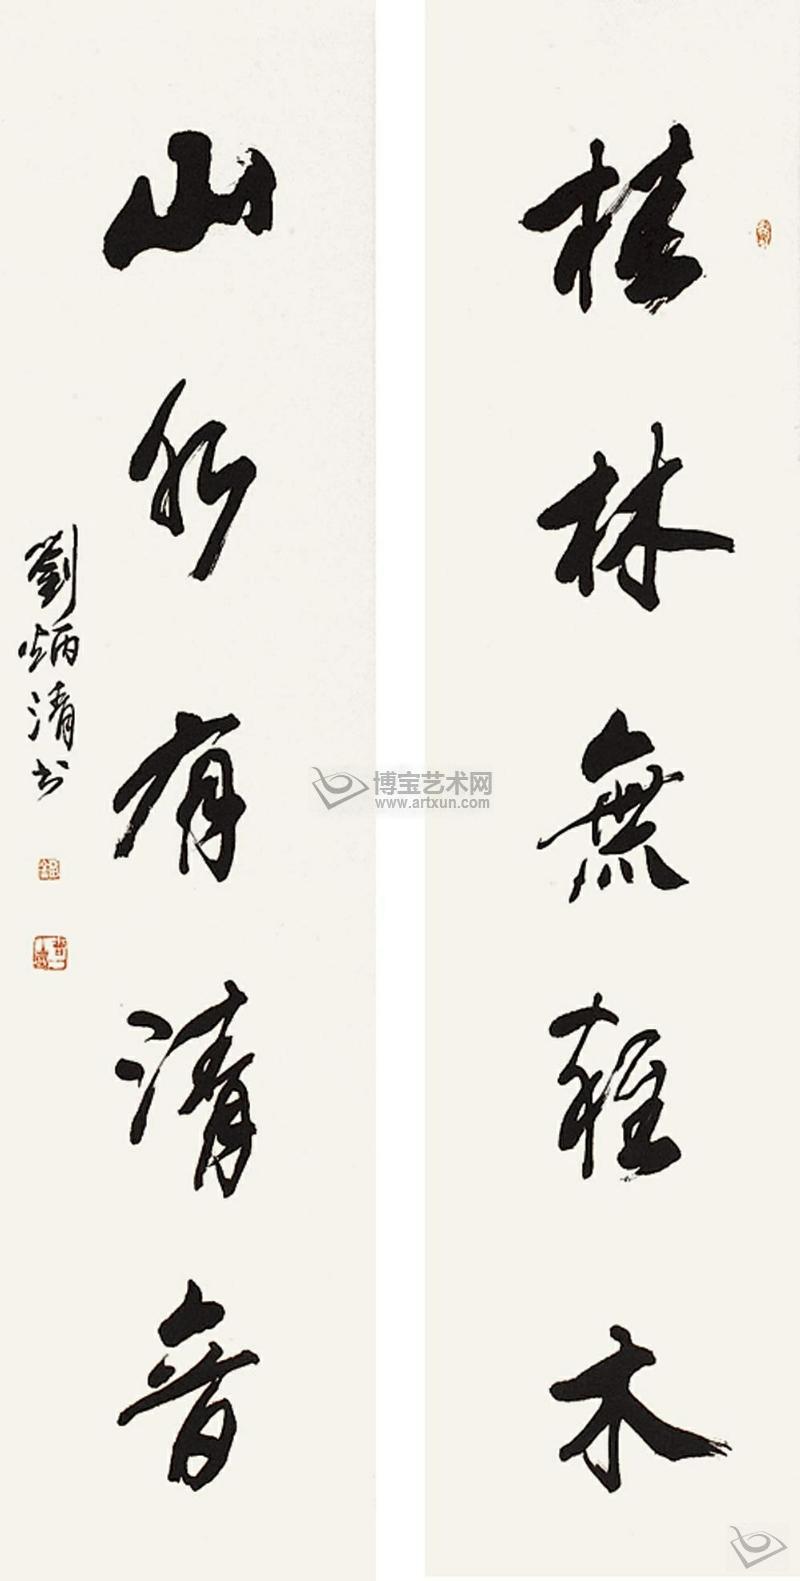 桂林無雜木
山水有清音
劉炳清书
博宝艺术网
www.artxun.com